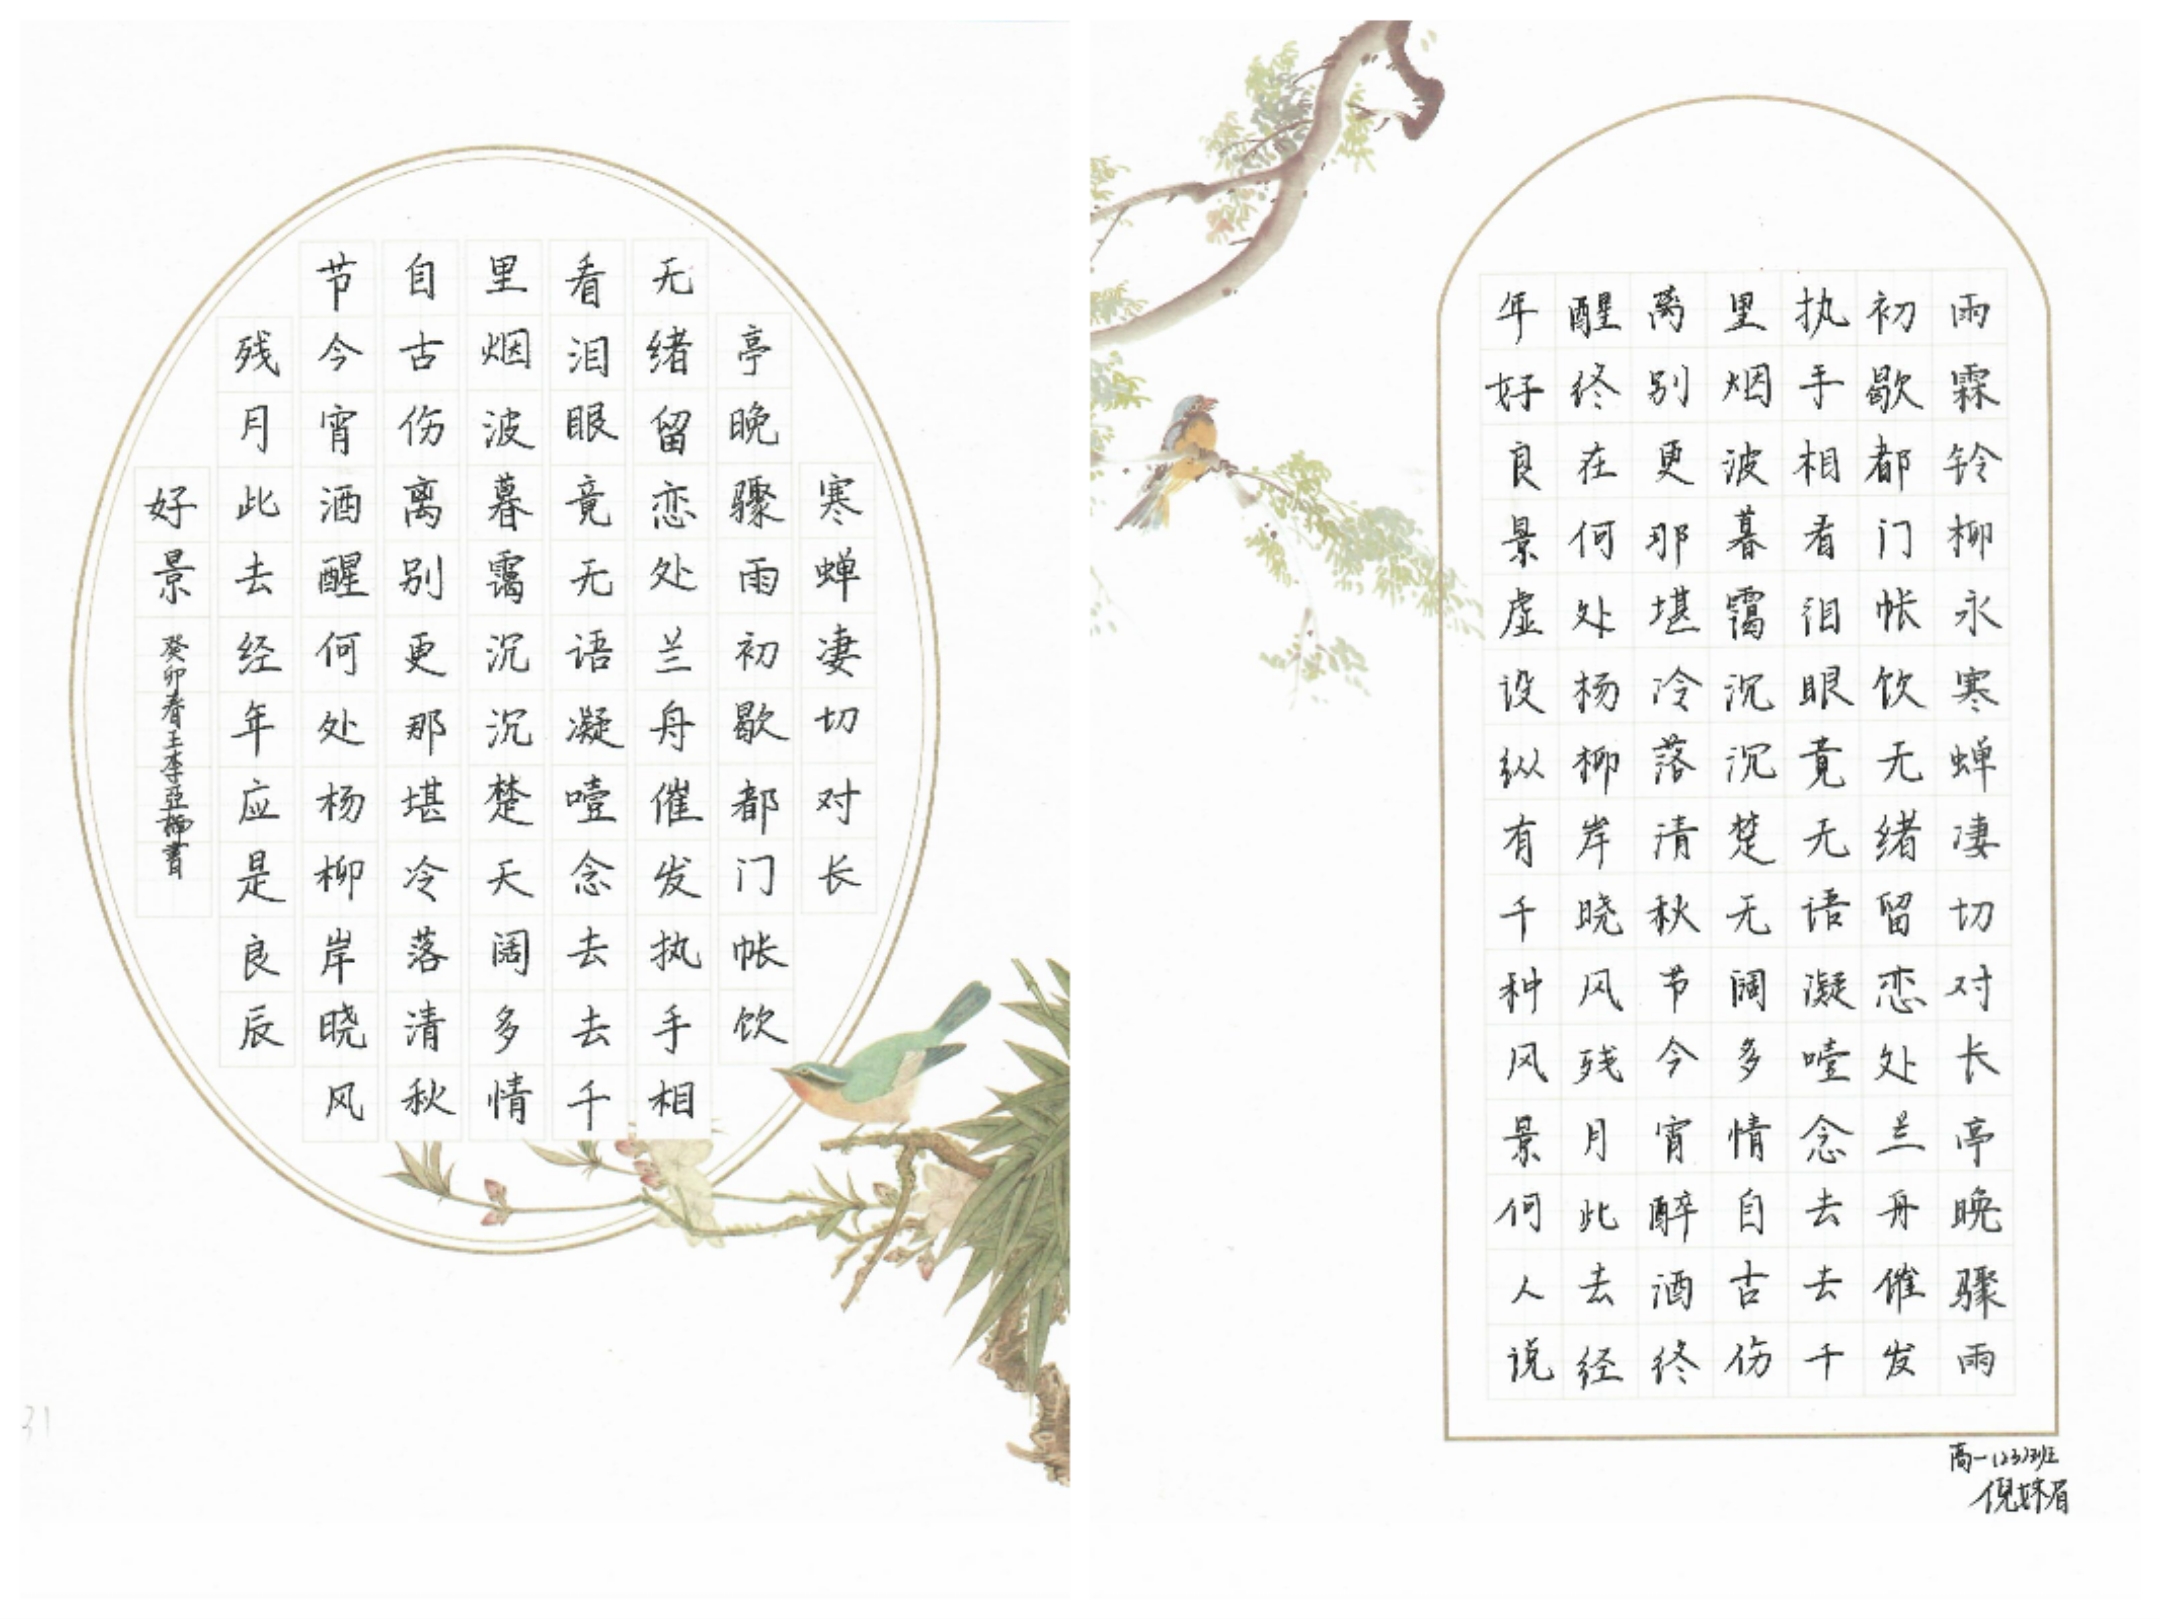 寒蝉凄切对长
亭晚骤雨初歇都门帐饮
无绪留恋处兰舟催发执手相
看泪眼竟无语凝噎念去去千
里烟波暮霭沉沉楚天阔多情
自古伤离别更那堪冷落清秋
节今宵酒醒何处杨柳岸晓风
残月此去经年应是良辰
好景
癸卯春王李亞楠書
雨霖铃柳永寒蝉凄切对长亭晚骤雨
初歇都门帐饮无绪留恋处兰舟催发
执手相看泪眼竟无语凝噎念去去千
里烟波暮霭沉沉楚无阔多情自古伤
离别更那堪冷落清秋节今宵醉酒终
醒终在何处杨柳岸晓风残月此去经
年好良景虚设纵有千种风景何人说
高一(23)班
倪姝眉